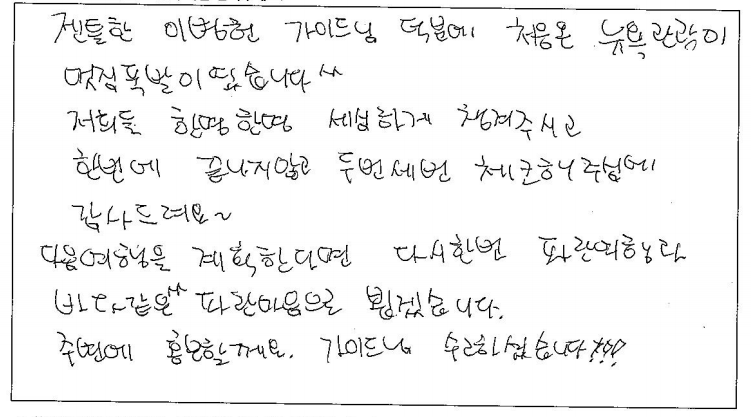 젠틀한 이범헌 가이드님 덕분에 처음온 뉴욕관광이
멋짐폭발이였습니다^^
저희들 한명한명 세심하게 챙겨주시고
한번에 끝나지않고 두번세번 체크해주심에
감사드려요~
다음여행을 계획한다면 다시한번 파란여행과
바다같은^^ 파란마음으로 뵙겠습니다.
주변에 홍보할께요. 가이드님 수고하셨습니다!!!